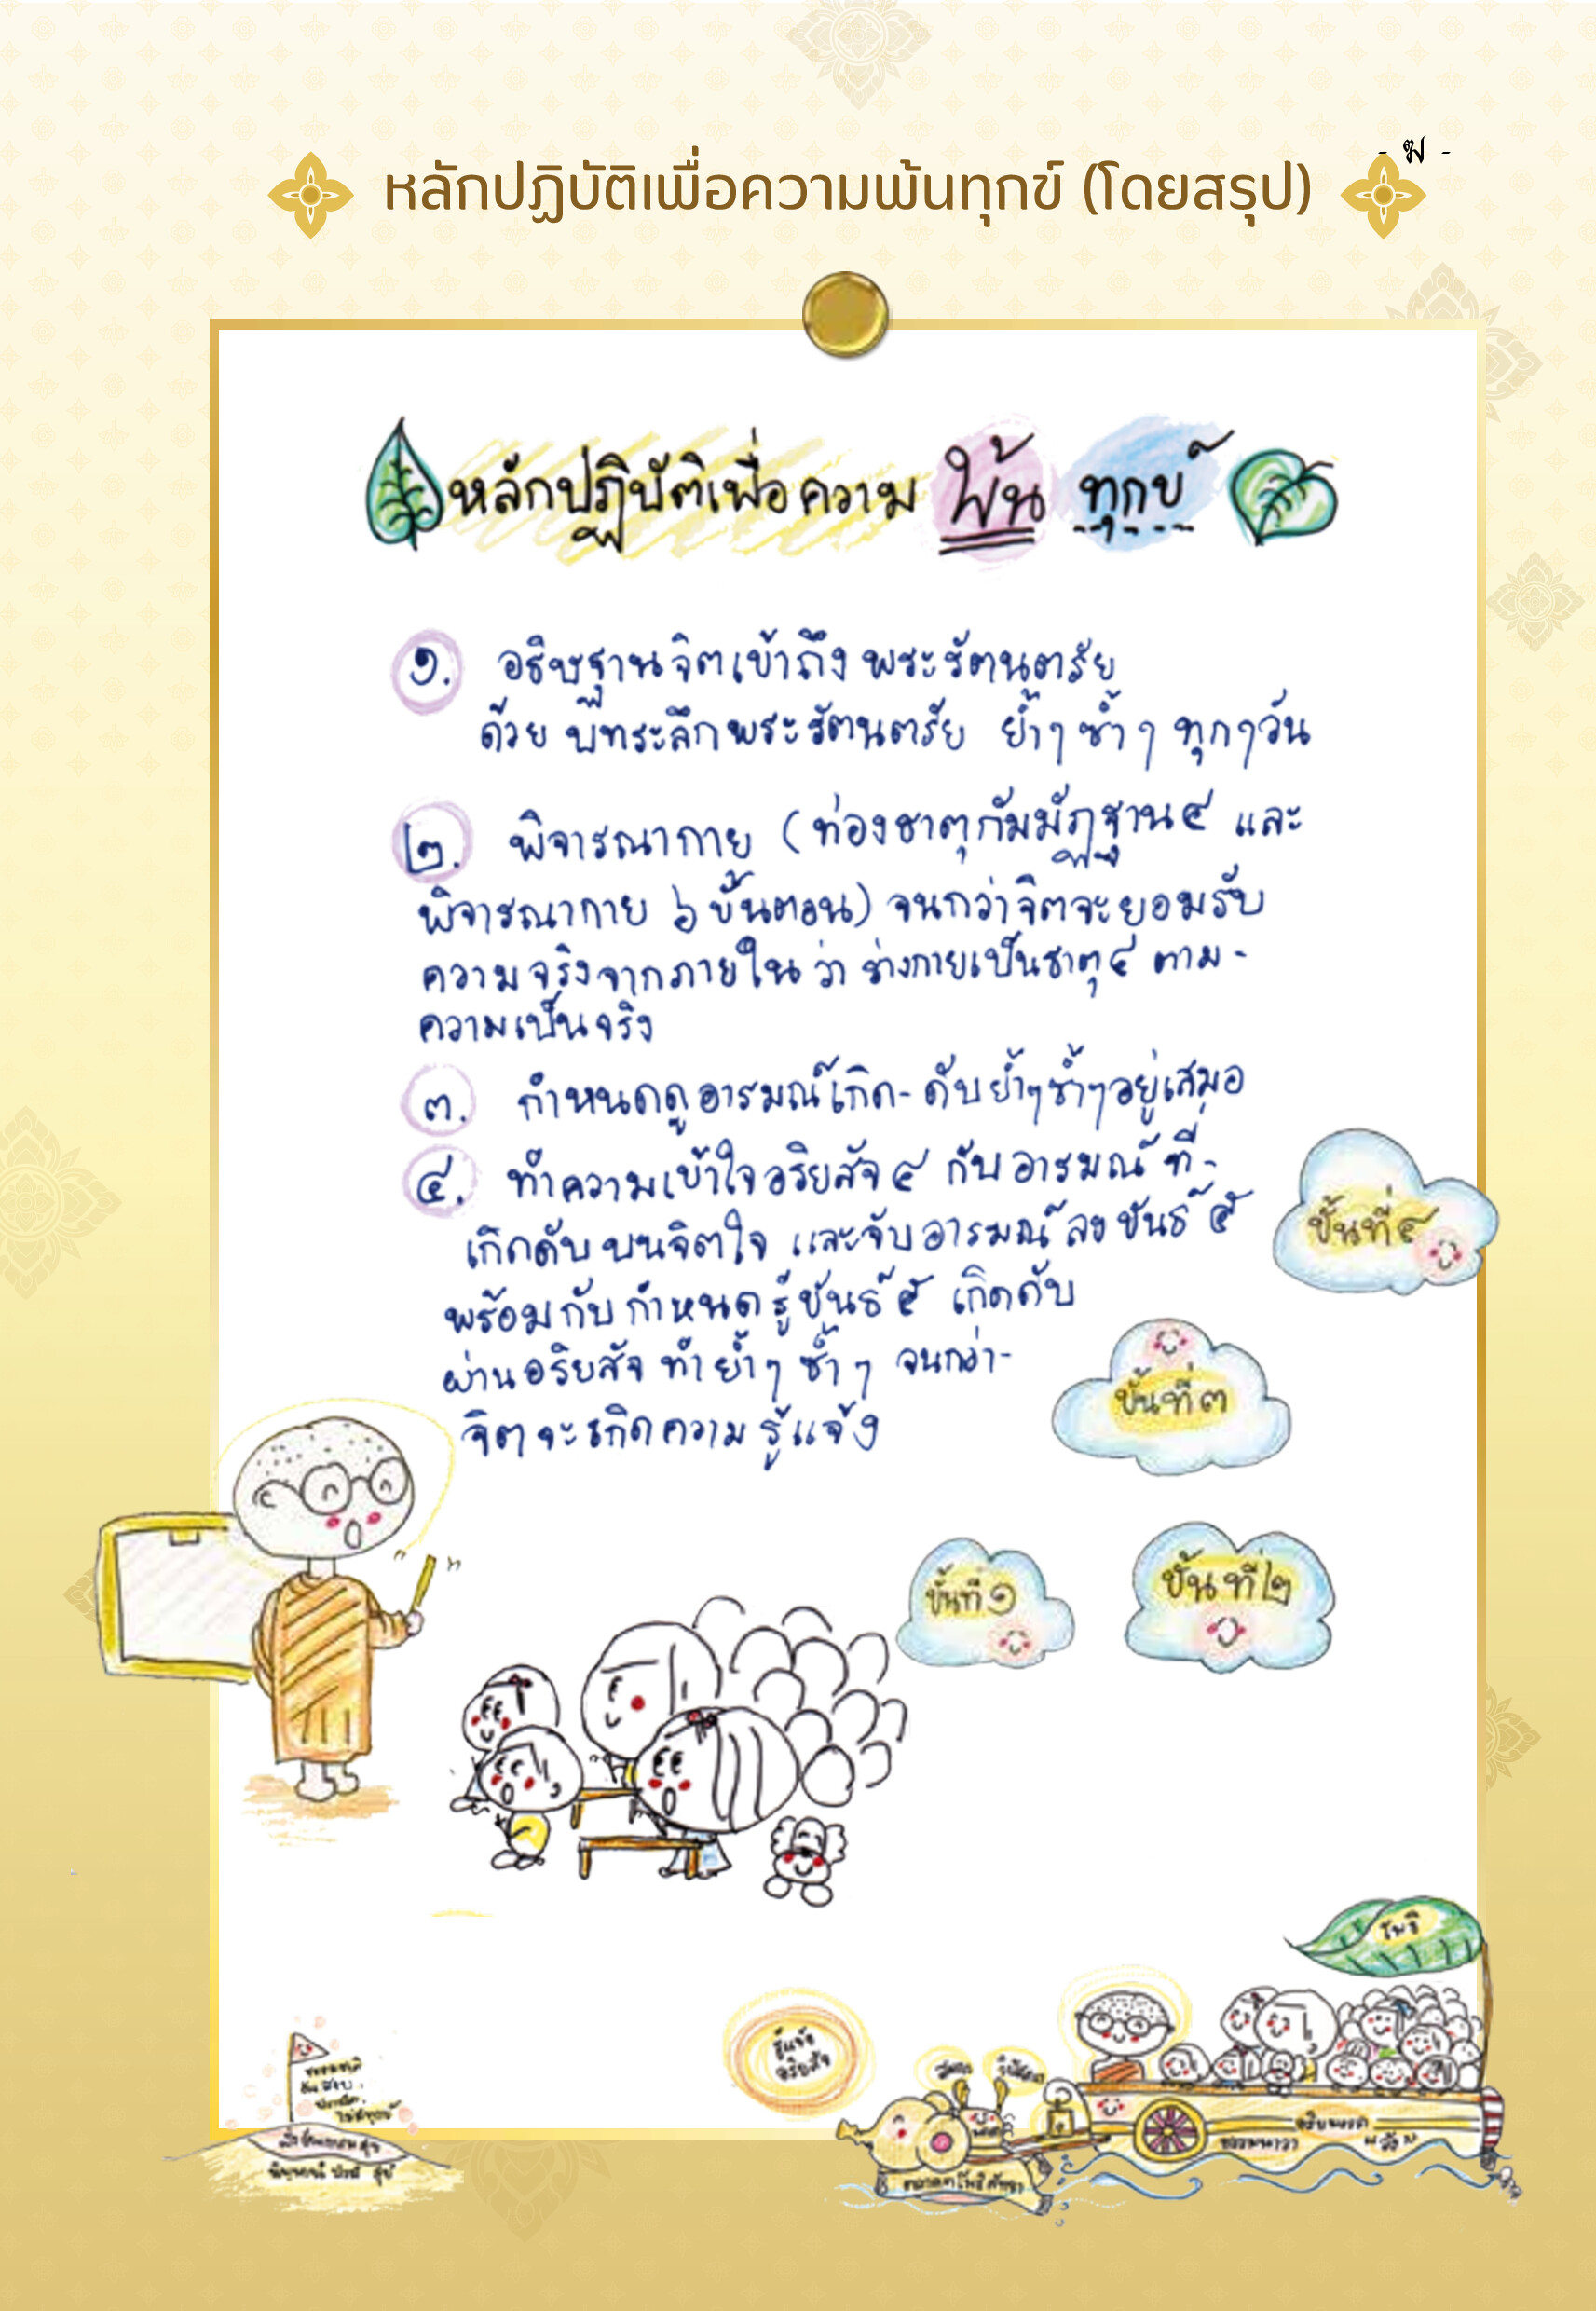 - ฆ -
หลักปฏิบัติเพื่อความพ้นทุกข์ (โดยสรุป)
หลักปฏิบัติเพื่อความ พ้น ทุกข์
๑. อธิษฐานจิตเข้าถึงพระรัตนตรัย
ด้วย บทระลึกพระรัตนตรัย ย้ำๆ ซ้ำๆ ทุกๆวัน
๒. พิจารณากาย (ท่องธาตุกัมมัฏฐาน๔ และ
พิจารณากาย ๖ ขั้นตอน) จนกว่าจิตจะยอมรับ
ความจริงจากภายใน ว่า ร่างกายเป็นธาตุ๔ ตาม-
ความเป็นจริง
๓. กำหนดดูอารมณ์เกิด-ดับย้ำๆซ้ำๆอยู่เสมอ
๔. ทำความเข้าใจอริยสัจ๔ กับอารมณ์ ที่-
เกิดดับ บนจิตใจ และจับอารมณ์ ลงขันธ์ ๕
พร้อมกับ กำหนดรู้ขันธ์ ๕ เกิดดับ
ผ่านอริยสัจ ทำย้ำๆ ซ้ำๆ จนกว่า-
จิตจะเกิดความ รู้แจ้ง
ขั้นที่๔
ขั้นที่๓
ขั้นที่๑
ขั้นที่๒
โพธิ
รู้แจ้ง
อริยสัจ
อริยมรรค
ธรรมนาวา "วัง"